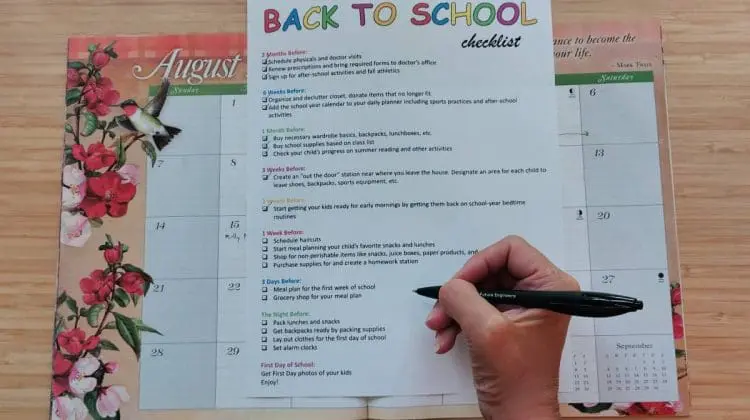 BACK TO SCHOOL
checklist
ance to become the
your life.
– MARK TWAIN
August
Sunday
Saturday
2 Months Before:
Schedule physicals and doctor visits
Renew prescriptions and bring required forms to doctor's office
Sign up for after-school activities and fall athletics
6 Weeks Before:
Organize and declutter closet, donate items that no longer fit
Add the school year calendar to your daily planner including sports practices and after-school
activities
1 Month Before:
Buy necessary wardrobe basics, backpacks, lunchboxes, etc.
Buy school supplies based on class list
Check your child's progress on summer reading and other activities
3 Weeks Before:
Create an "out the door" station near where you leave the house. Designate an area for each child to
leave shoes, backpacks, sports equipment, etc.
2 Weeks Before:
Start getting your kids ready for early mornings by getting them back on school-year bedtime
routines
1 Week Before:
Schedule haircuts
Start meal planning your child's favorite snacks and lunches
Shop for non-perishable items like snacks, juice boxes, paper products, and
Purchase supplies for and create a homework station
3 Days Before:
Meal plan for the first week of school
Grocery shop for your meal plan
The Night Before:
Pack lunches and snacks
Get backpacks ready by packing supplies
Lay out clothes for the first day of school
Set alarm clocks
First Day of School:
Get First Day photos of your kids
Enjoy!
1
6
7
8
13
14
15
20
21
22
27
28
29
September
Future Engineers